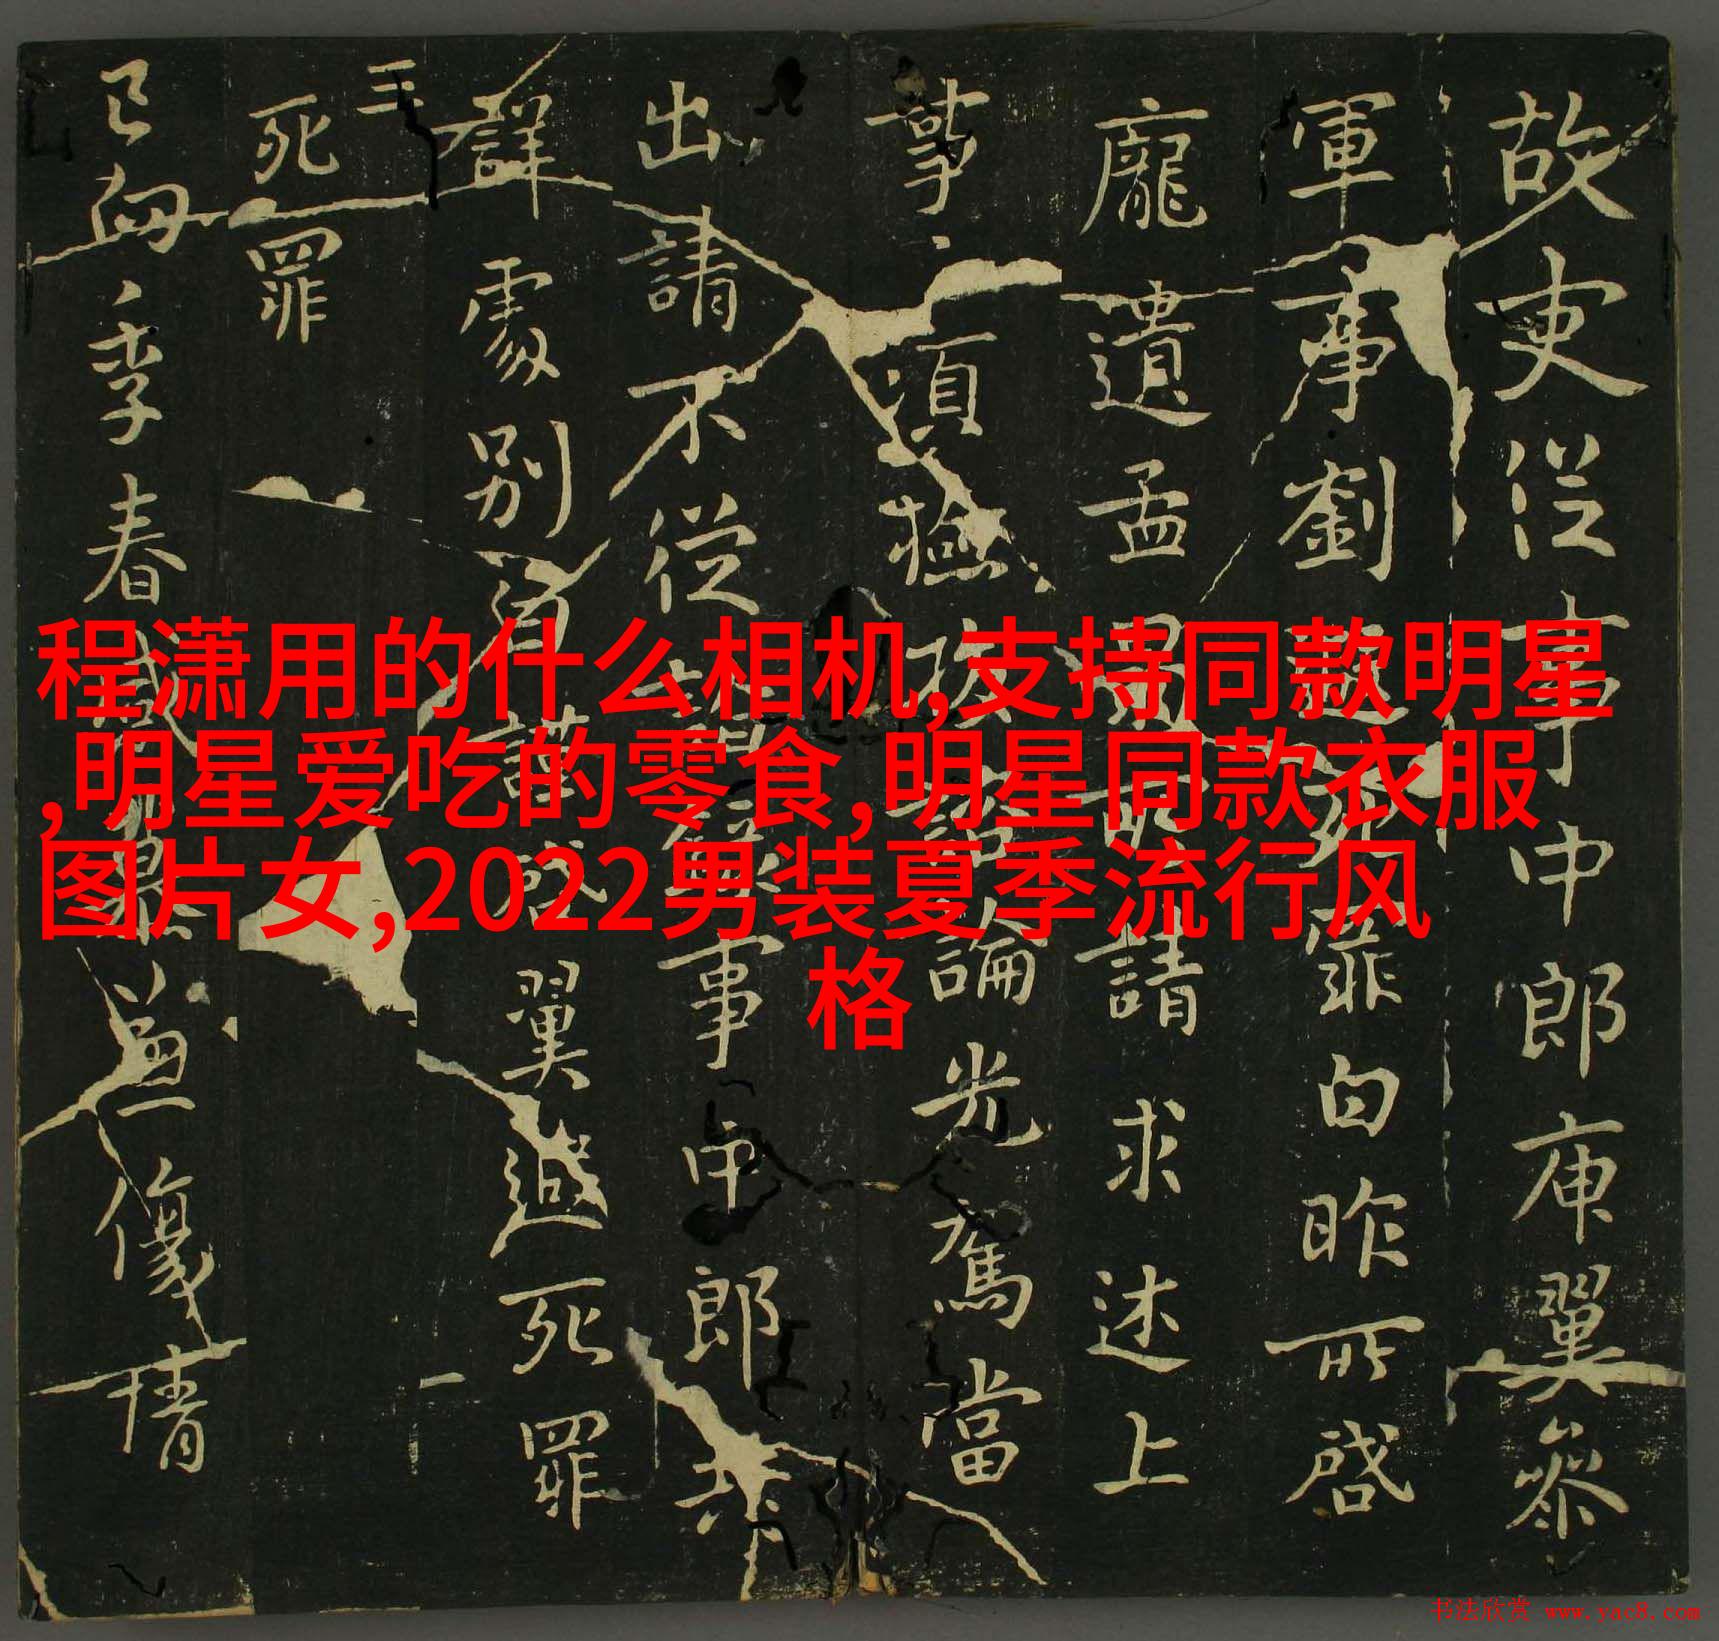 程潇用的什么相机,支持同款明星
,明星爱吃的零食,明星同款衣服
图片女,2022男装夏季流行风
格
故吏從事中郎庾翼參
軍事劉遐死罪白昨所啓
龐遺孟請求述上
事須撿論光駕當
出請不從事中郎共
詳處別省謹啓翼遐死罪
死罪
季春
书法欣赏 www.yac8.com